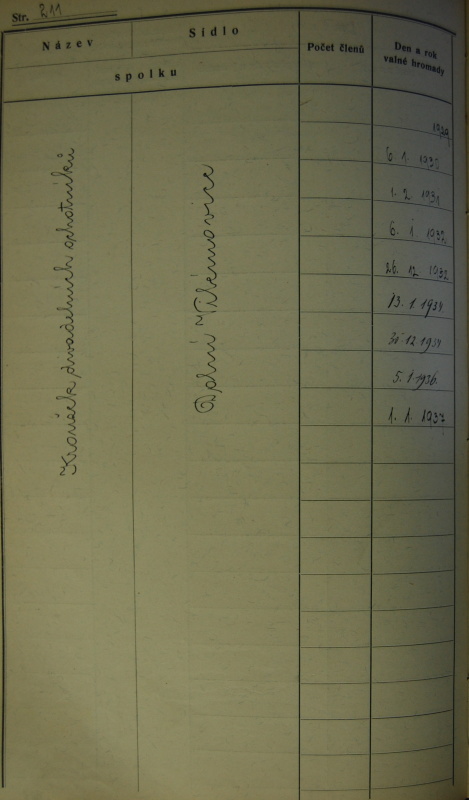 Str. 211
Název
Sídlo
spolku
Počet členů
Den a rok
valné hromady
Kroužek divadelních ochotníků
Dolní Věžovice
1929
6. 1. 1930
1. 2. 1931
6. 1. 1932
26. 12. 1932
13. 1. 1934
31. 12. 1934
5. 1. 1936.
1. 1. 1937